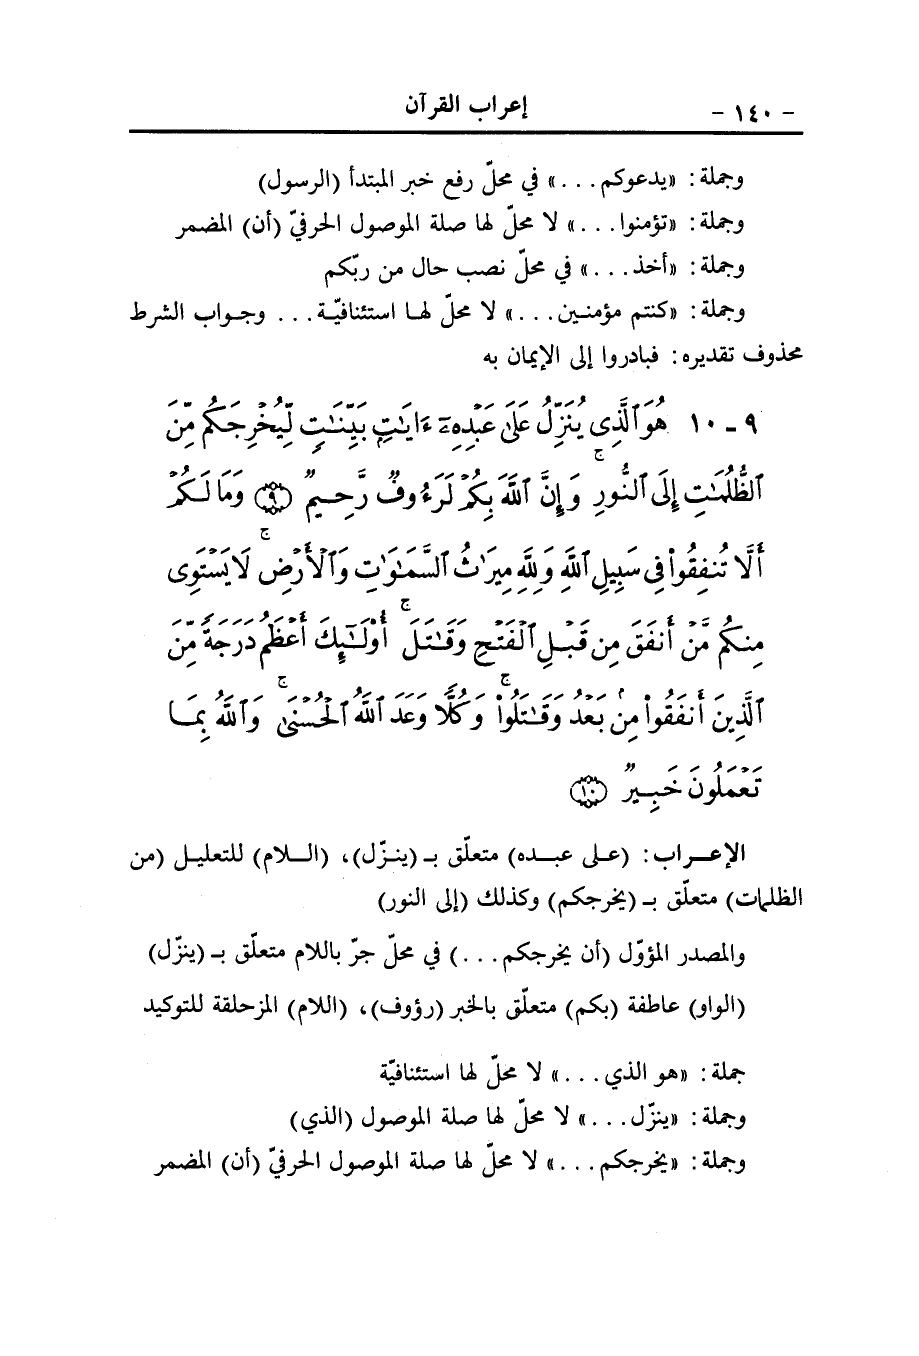 - ١٤٠ - إعراب القرآن
وجملة: «يدعوكم...» في محلّ رفع خبر المبتدأ (الرسول)
وجملة: «تؤمنوا...» لا محلّ لها صلة الموصول الحرفيّ (أن) المضمر
وجملة: «أخذ...» في محلّ نصب حال من ربّكم
وجملة: «كنتم مؤمنين...» لا محلّ لها استئنافيّة... وجواب الشرط
محذوف تقديره: فبادروا إلى الإيمان به
٩ - ١٠ هُوَ ٱلَّذِى يُنَزِّلُ عَلَىٰ عَبْدِهِۦٓ ءَايَٰتٍۭ بَيِّنَٰتٍ لِّيُخْرِجَكُم مِّنَ
ٱلظُّلُمَٰتِ إِلَى ٱلنُّورِ ۚ وَإِنَّ ٱللَّهَ بِكُمْ لَرَءُوفٌ رَّحِيمٌ ﴿٩﴾ وَمَا لَكُمْ
أَلَّا تُنفِقُوا۟ فِى سَبِيلِ ٱللَّهِ وَلِلَّهِ مِيرَٰثُ ٱلسَّمَٰوَٰتِ وَٱلْأَرْضِ ۚ لَا يَسْتَوِى
مِنكُم مَّنْ أَنفَقَ مِن قَبْلِ ٱلْفَتْحِ وَقَٰتَلَ ۚ أُو۟لَٰٓئِكَ أَعْظَمُ دَرَجَةً مِّنَ
ٱلَّذِينَ أَنفَقُوا۟ مِنۢ بَعْدُ وَقَٰتَلُوا۟ ۚ وَكُلًّا وَعَدَ ٱللَّهُ ٱلْحُسْنَىٰ ۚ وَٱللَّهُ بِمَا
تَعْمَلُونَ خَبِيرٌ ﴿١٠﴾
الإعراب: (على عبده) متعلّق بـ (ينزّل)، (اللام) للتعليل (من
الظلمات) متعلّق بـ (يخرجكم) وكذلك (إلى النور)
والمصدر المؤوّل (أن يخرجكم...) في محلّ جرّ باللام متعلّق بـ (ينزّل)
(الواو) عاطفة (بكم) متعلّق بالخبر (رؤوف)، (اللام) المزحلقة للتوكيد
جملة: «هو الذي...» لا محلّ لها استئنافيّة
وجملة: «ينزّل...» لا محلّ لها صلة الموصول (الذي)
وجملة: «يخرجكم...» لا محلّ لها صلة الموصول الحرفيّ (أن) المضمر